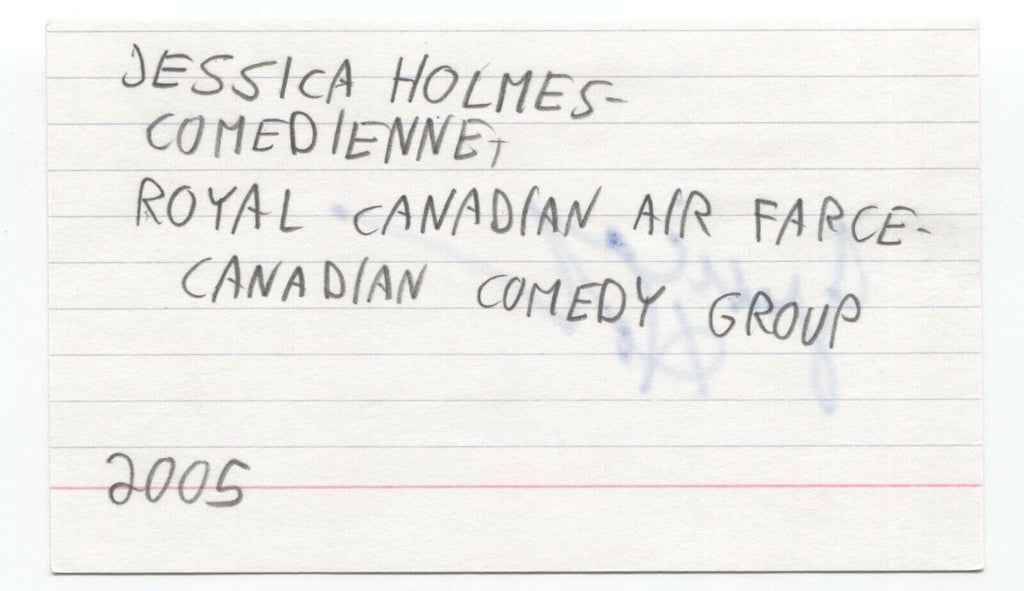 JESSICA HOLMES-
COMEDIENNE,
ROYAL CANADIAN AIR FARCE-
CANADIAN COMEDY GROUP
2005